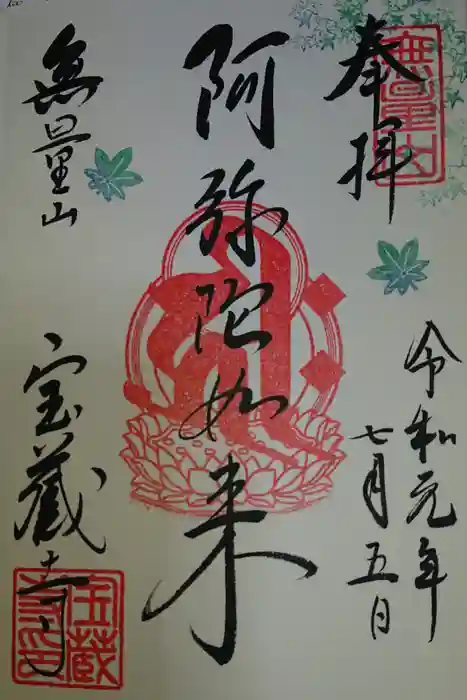 奉拝
令和元年
七月五日
阿弥陀如来
無量山
宝蔵寺
無量山